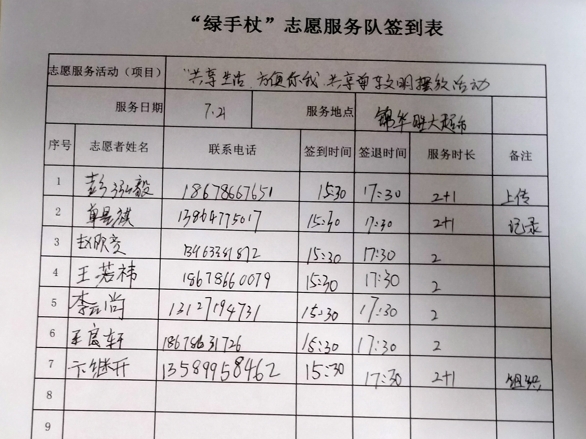 “绿手杖”志愿服务队签到表
志愿服务活动（项目） “共享生活 方便你我 共享单车文明摆放活动
服务日期 7.21 服务地点 锦华 大超市
序号 志愿者姓名 联系电话 签到时间 签退时间 服务时长 备注
1 彭泓毅 18678667651 15:30 17:30 2+1 上传
2 单 祺 13864775017 15:30 17:30 2+1 记录
3 赵欣 15:30 17:30 2
4 王若祎 18678660079 15:30 17:30 2
5 李 尚 13127194731 15:30 17:30 2
6 王 轩 18678631726 15:30 17:30 2
7 卞继开 13589958462 15:30 17:30 2+1 组织
8
9